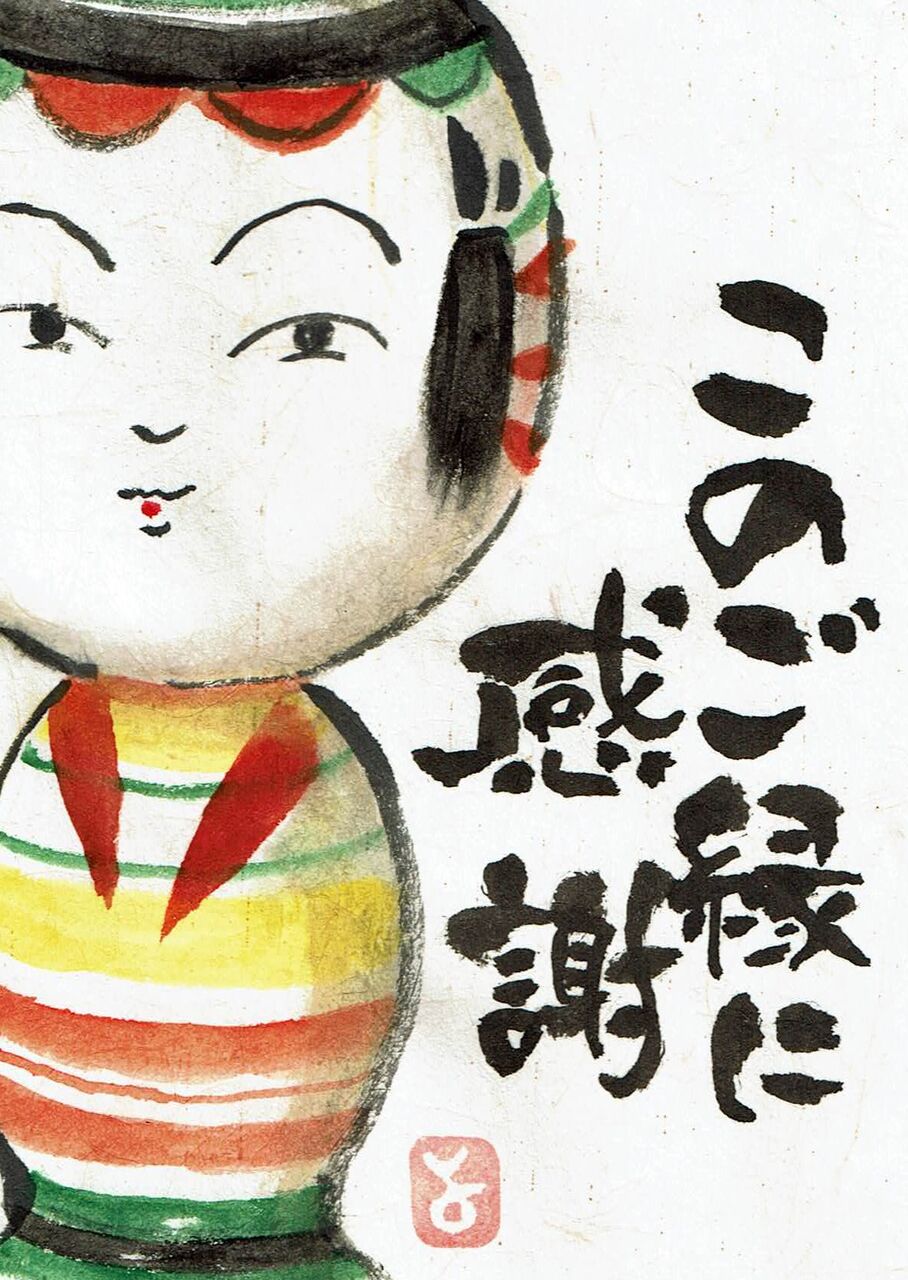 このご縁に
感謝